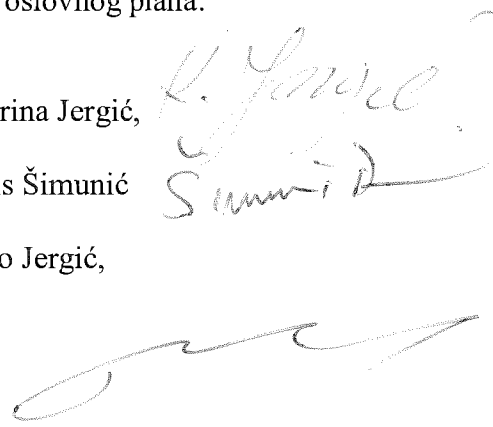 oslovnog plana.
rina Jergić, K. Jergić
s Šimunić Šimunić D
o Jergić,